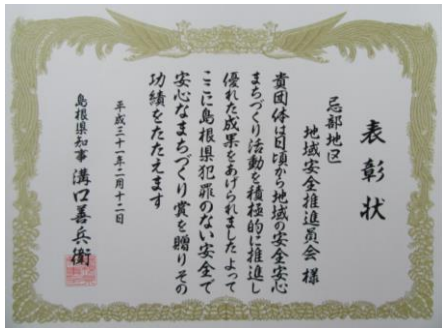 表彰状
忌部地区
地域安全推進員会 様
貴団体は日頃から地域の安全安心
まちづくり活動を積極的に推進し
優れた成果をあげられましたよって
ここに島根県犯罪のない安全で
安心なまちづくり賞を贈りその
功績をたたえます
平成三十一年二月十二日
島根県知事 溝口善兵衛